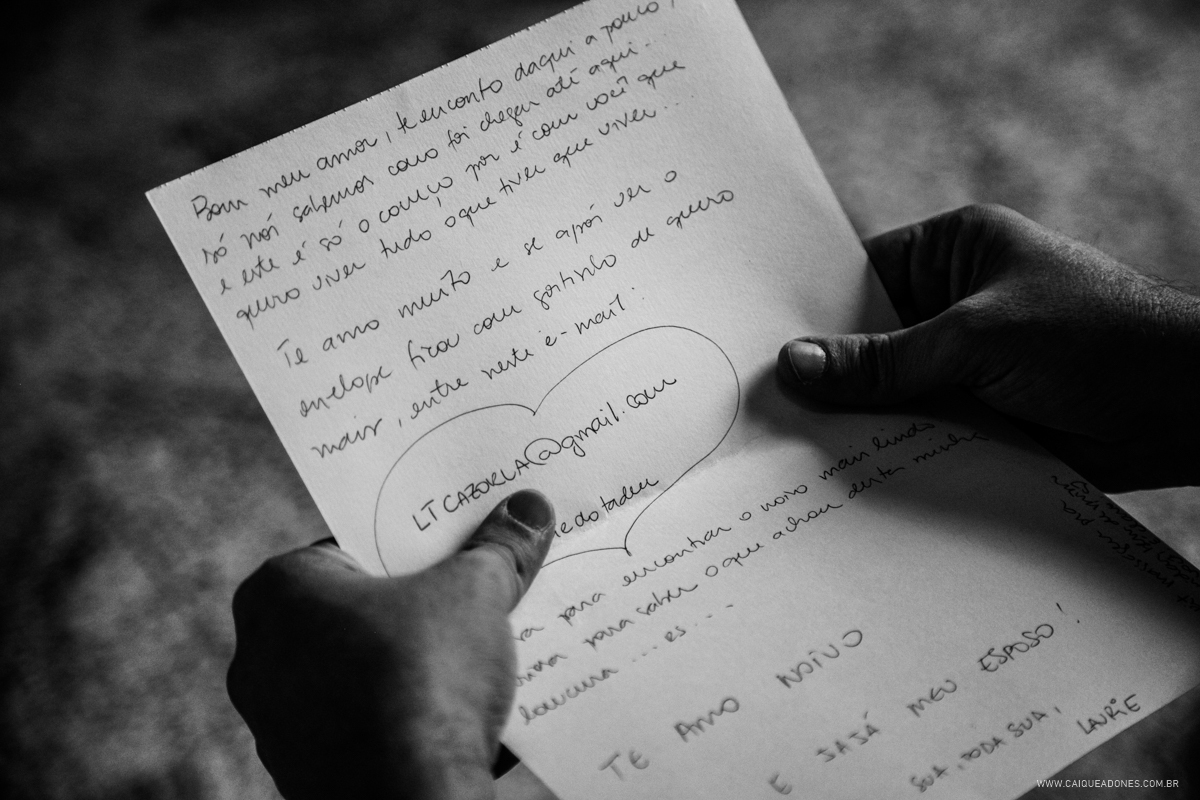 Bom meu amor, te encontro daqui a pouco,
só nós sabemos como foi chegar até aqui...
e este é só o começo, por é com você que
quero viver tudo o que tiver que viver...
Te amo muito e se após ver o
envelope ficou com gostinho de quero
mais, entre neste e-mail:
LTCAZORLA@gmail.com
para encontrar o noivo mais lindo
para saber o que achou desta minha
loucura ... es ...
TE AMO NOIVO
E JAJÁ MEU ESPOSO!
SUA, TODA SUA,
LAURIE
WWW.CAIQUEADONES.COM.BR